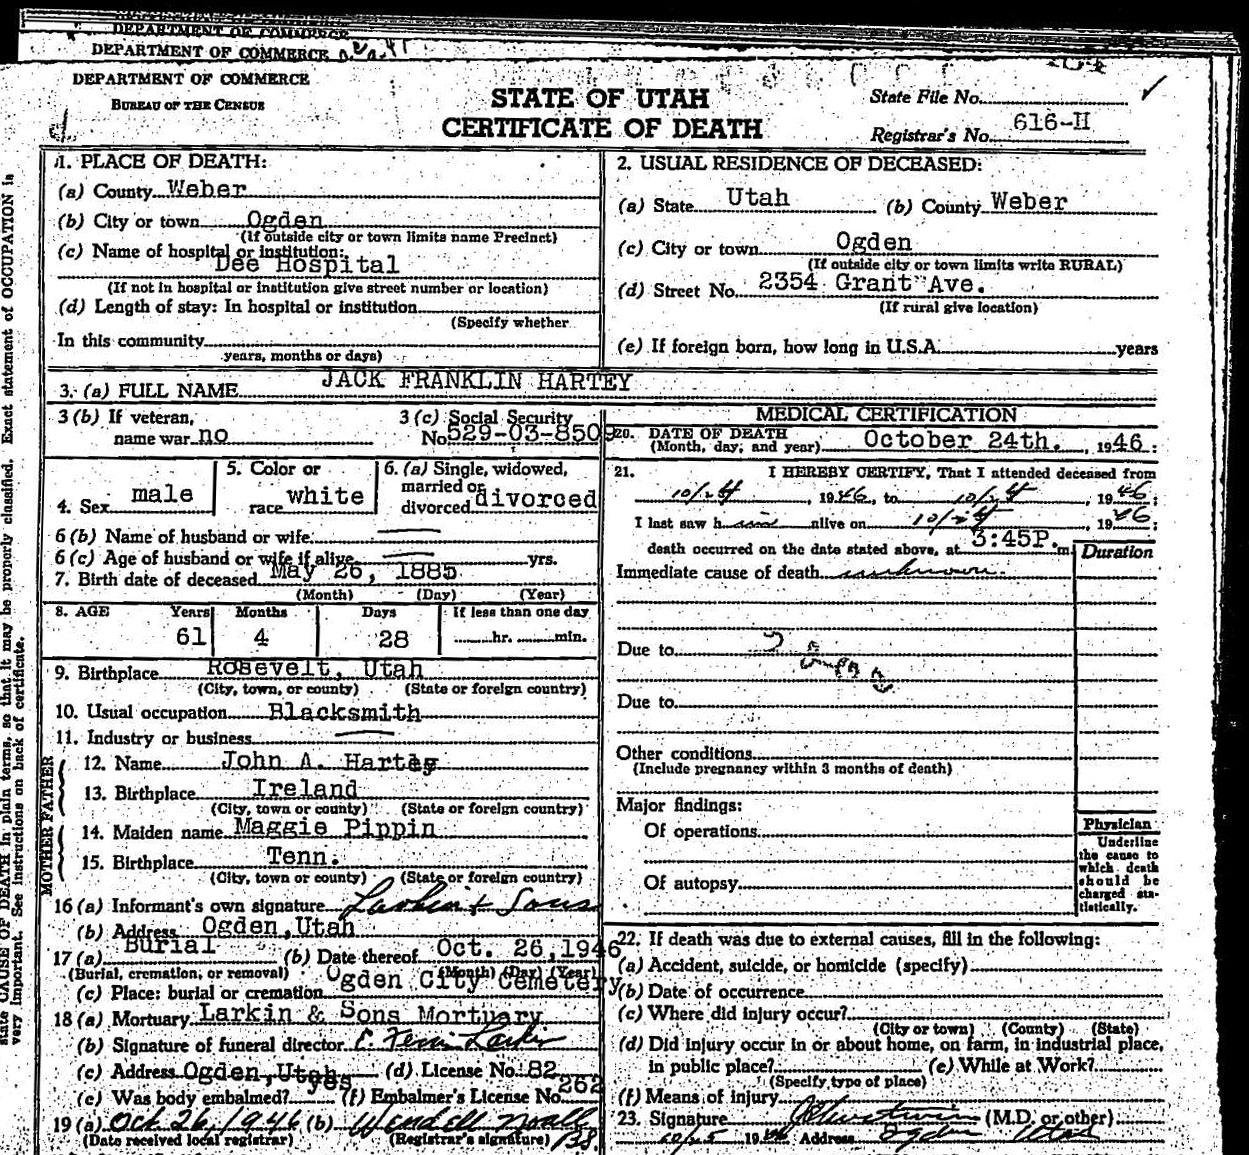 DEPARTMENT OF COMMERCE
DEPARTMENT OF COMMERCE
DEPARTMENT OF COMMERCE
BUREAU OF THE CENSUS
STATE OF UTAH
CERTIFICATE OF DEATH
State File No.
Registrar's No. 616-II
1. PLACE OF DEATH:
(a) County Weber
(b) City or town Ogden
(If outside city or town limits name Precinct)
(c) Name of hospital or institution:
Dee Hospital
(If not in hospital or institution give street number or location)
(d) Length of stay: In hospital or institution
(Specify whether
In this community
years, months or days)
2. USUAL RESIDENCE OF DECEASED:
(a) State Utah (b) County Weber
(c) City or town Ogden
(If outside city or town limits write RURAL)
(d) Street No. 2354 Grant Ave.
(If rural give location)
(e) If foreign born, how long in U.S.A. years
3. (a) FULL NAME JACK FRANKLIN HARTEY
3 (b) If veteran,
name war no
3 (c) Social Security
No 529-03-8509
4. Sex male
5. Color or
race white
6. (a) Single, widowed,
married or
divorced divorced
6 (b) Name of husband or wife
6 (c) Age of husband or wife if alive yrs.
7. Birth date of deceased May 26, 1885
(Month) (Day) (Year)
8. AGE Years Months Days If less than one day
61 4 28 hr. min.
9. Birthplace Rosevelt, Utah
(City, town, or county) (State or foreign country)
10. Usual occupation Blacksmith
11. Industry or business
FATHER
12. Name John A. Hartey
13. Birthplace Ireland
(City, town or county) (State or foreign country)
MOTHER
14. Maiden name Maggie Pippin
15. Birthplace Tenn.
(City, town or county) (State or foreign country)
16 (a) Informant's own signature Larkin & Sons
(b) Address Ogden, Utah
17 (a) Burial (b) Date thereof Oct. 26, 1946
(Burial, cremation, or removal) (Month) (Day) (Year)
(c) Place: burial or cremation Ogden City Cemetery
18 (a) Mortuary Larkin & Sons Mortuary
(b) Signature of funeral director Larkin
(c) Address Ogden, Utah (d) License No. 82
(e) Was body embalmed? yes (f) Embalmer's License No. 262
19 (a) Oct 26, 1946 (b) Wendell Noall
(Date received local registrar) (Registrar's signature)
MEDICAL CERTIFICATION
20. DATE OF DEATH
(Month, day, and year) October 24th. , 1946 :
21. I HEREBY CERTIFY, That I attended deceased from
10/24 , 1946, to 10/24 , 1946;
I last saw him alive on 10/24 , 1946;
death occurred on the date stated above, at 3:45P. m.
Duration
Immediate cause of death unknown.
Due to
Due to
Other conditions
(Include pregnancy within 3 months of death)
Major findings:
Of operations
Of autopsy
Physician
Underline
the cause to
which death
should be
charged sta-
tistically.
22. If death was due to external causes, fill in the following:
(a) Accident, suicide, or homicide (specify)
(b) Date of occurrence
(c) Where did injury occur?
(City or town) (County) (State)
(d) Did injury occur in or about home, on farm, in industrial place,
in public place? (e) While at Work?
(Specify type of place)
(f) Means of injury
23. Signature (M.D. or other)
10/25 1946 Address Ogden Utah
state CAUSE OF DEATH in plain terms, so that it may be properly classified. Exact statement of OCCUPATION is
very important. See instructions on back of certificate.